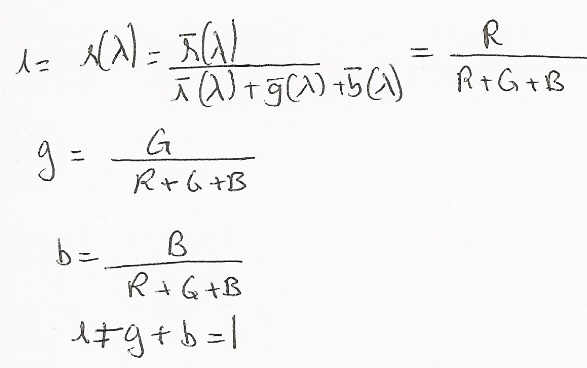 r = r(λ) = r̄(λ) / (r̄(λ) + ḡ(λ) + b̄(λ)) = R / (R+G+B)
g = G / (R+G+B)
b = B / (R+G+B)
r+g+b=1